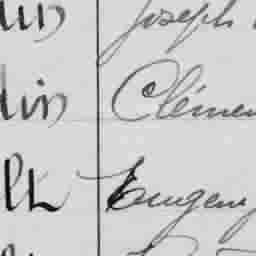 Joseph
lin Clémen
lk Eugeny